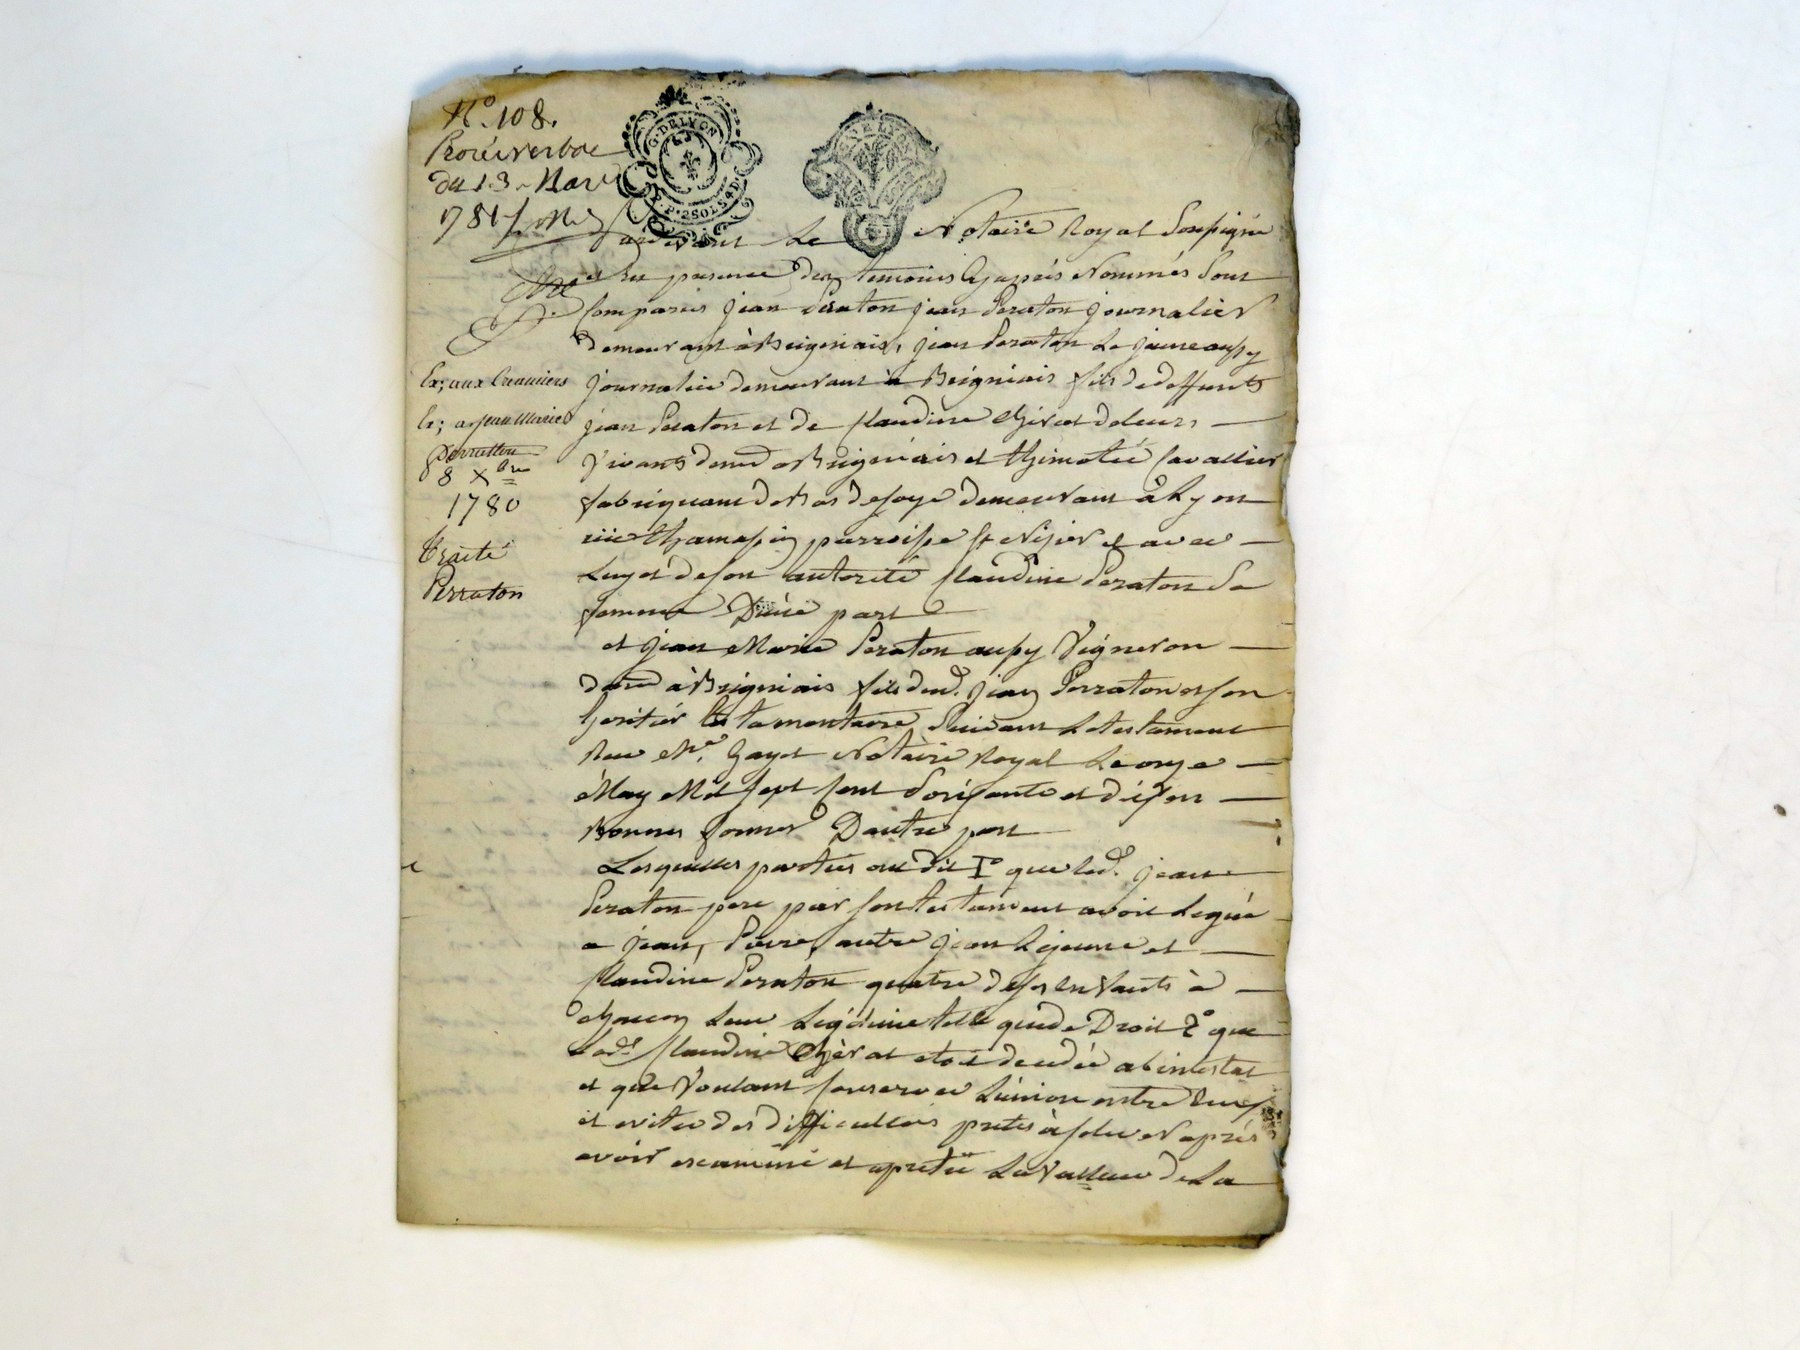 N.º 108.
Procés verbae
du 13. Mars
1781
G. DE LYON
P. 2 SOLS 4 D.
GNE LYON
Pardevant Le Notaire Royal Soussigné
et En presence des temoins Cyaprés Nommés Sont
Comparus jean Peraton journalier
demeurant à Brigniais, jean Peraton Le jeune aussy
journalier demeurant à Brigniais fils de deffunts
jean Peraton et de Claudine de leurs
Vivants dem.d a Brigniais et Cavallier
fabriquant de Bas de soye demeurant à Lyon
rüe parroisse St Nizier et avec
Luy et de son autorité Claudine Peraton Sa
femme D'une part
et jean Marie Peraton aussy Vigneron
dem.d à Brigniais fils dud. jean Perraton et son
heritier testamentaire Suivant Le testament
Reçu Me. Gayet Notaire Royal Le onze
May Mil sept Cent Soixante et dix en
Bonnes formes D'autre part
Lesquelles parties ont dit 1º que led. jean
Peraton pere par son testament avoit Legué
a jean, Pierre, autre jean Le jeune et
Claudine Peraton quatre de ses Enfants à
chacun Leur Légitime telle que de Droit 2º que
Lad.e Claudine etoit decedée abintestat
et que Voulant Conserver L'union entre Eux
et eviter des difficultés pretes à s'elever après
avoir examiné et La Valleur de La
Ex; aux Creanciers
Ex; a jean Marie
Perratton
8 Xbre
1780
traité
Perraton